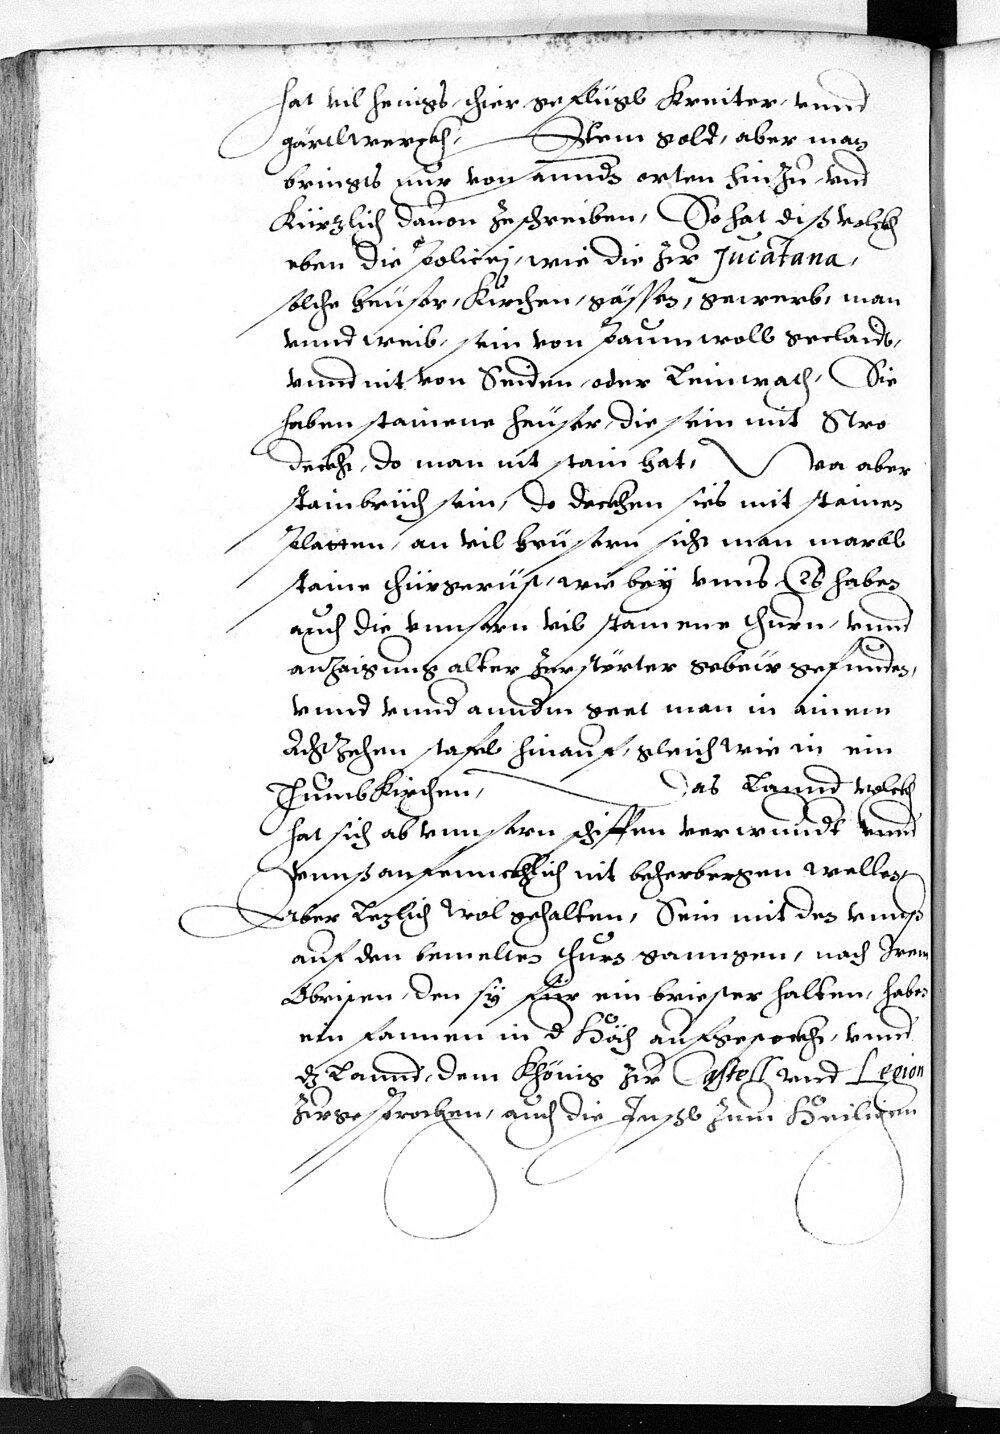 hat vil henigs, thier geflügl kreiter, vnnd
gärtlwerckh, Item gold, aber man
bringts nur von annd orten hinzu, vnd
kürzlich dauon ze schreiben, So hat diß volckh
eben die Policej, wie die zu Jucatana,
solche heüser, kirchen, gässen, gewerb, man
vnnd weib, sein von Paumwoll geclaidt,
vnnd nit von Seiden, oder Leinwath, Sie
haben stainene heüser, die sein mit Stro
deckht, do man nit stain hat, wa aber
stainbrüch sein, do deckhen sies mit stainen
Platten, an vil heüsern sicht man marbl
staine thürgerüst, wie bey vnns, Es haben
auch die vnnsern vil stainene thurn, vnnd
anzaigung alter zerstörter gebeür gefunden,
vnnd vnnd anndern geet man in ainem
Achtzehen stafel hinauf, gleich wie in ein
Thumbkirchen, Das Lannd volckh
hat sich ab vnnsern schiffen verwundt vnnd
vnnß anfennckhlich nit beherbergen wellen,
Aber Lezlich wol gehalten, Sein mit den vnnß
auf den bemelten thurn ganngen, nach Irem
Obristen, den sy für ein briester halten, haben
ein fannen in d höch aufgesteckht, vnnd
dz Lannd, dem Khönig zu Castell vnd Legion
zugesprochen, auch die Innsl zum Heiligen